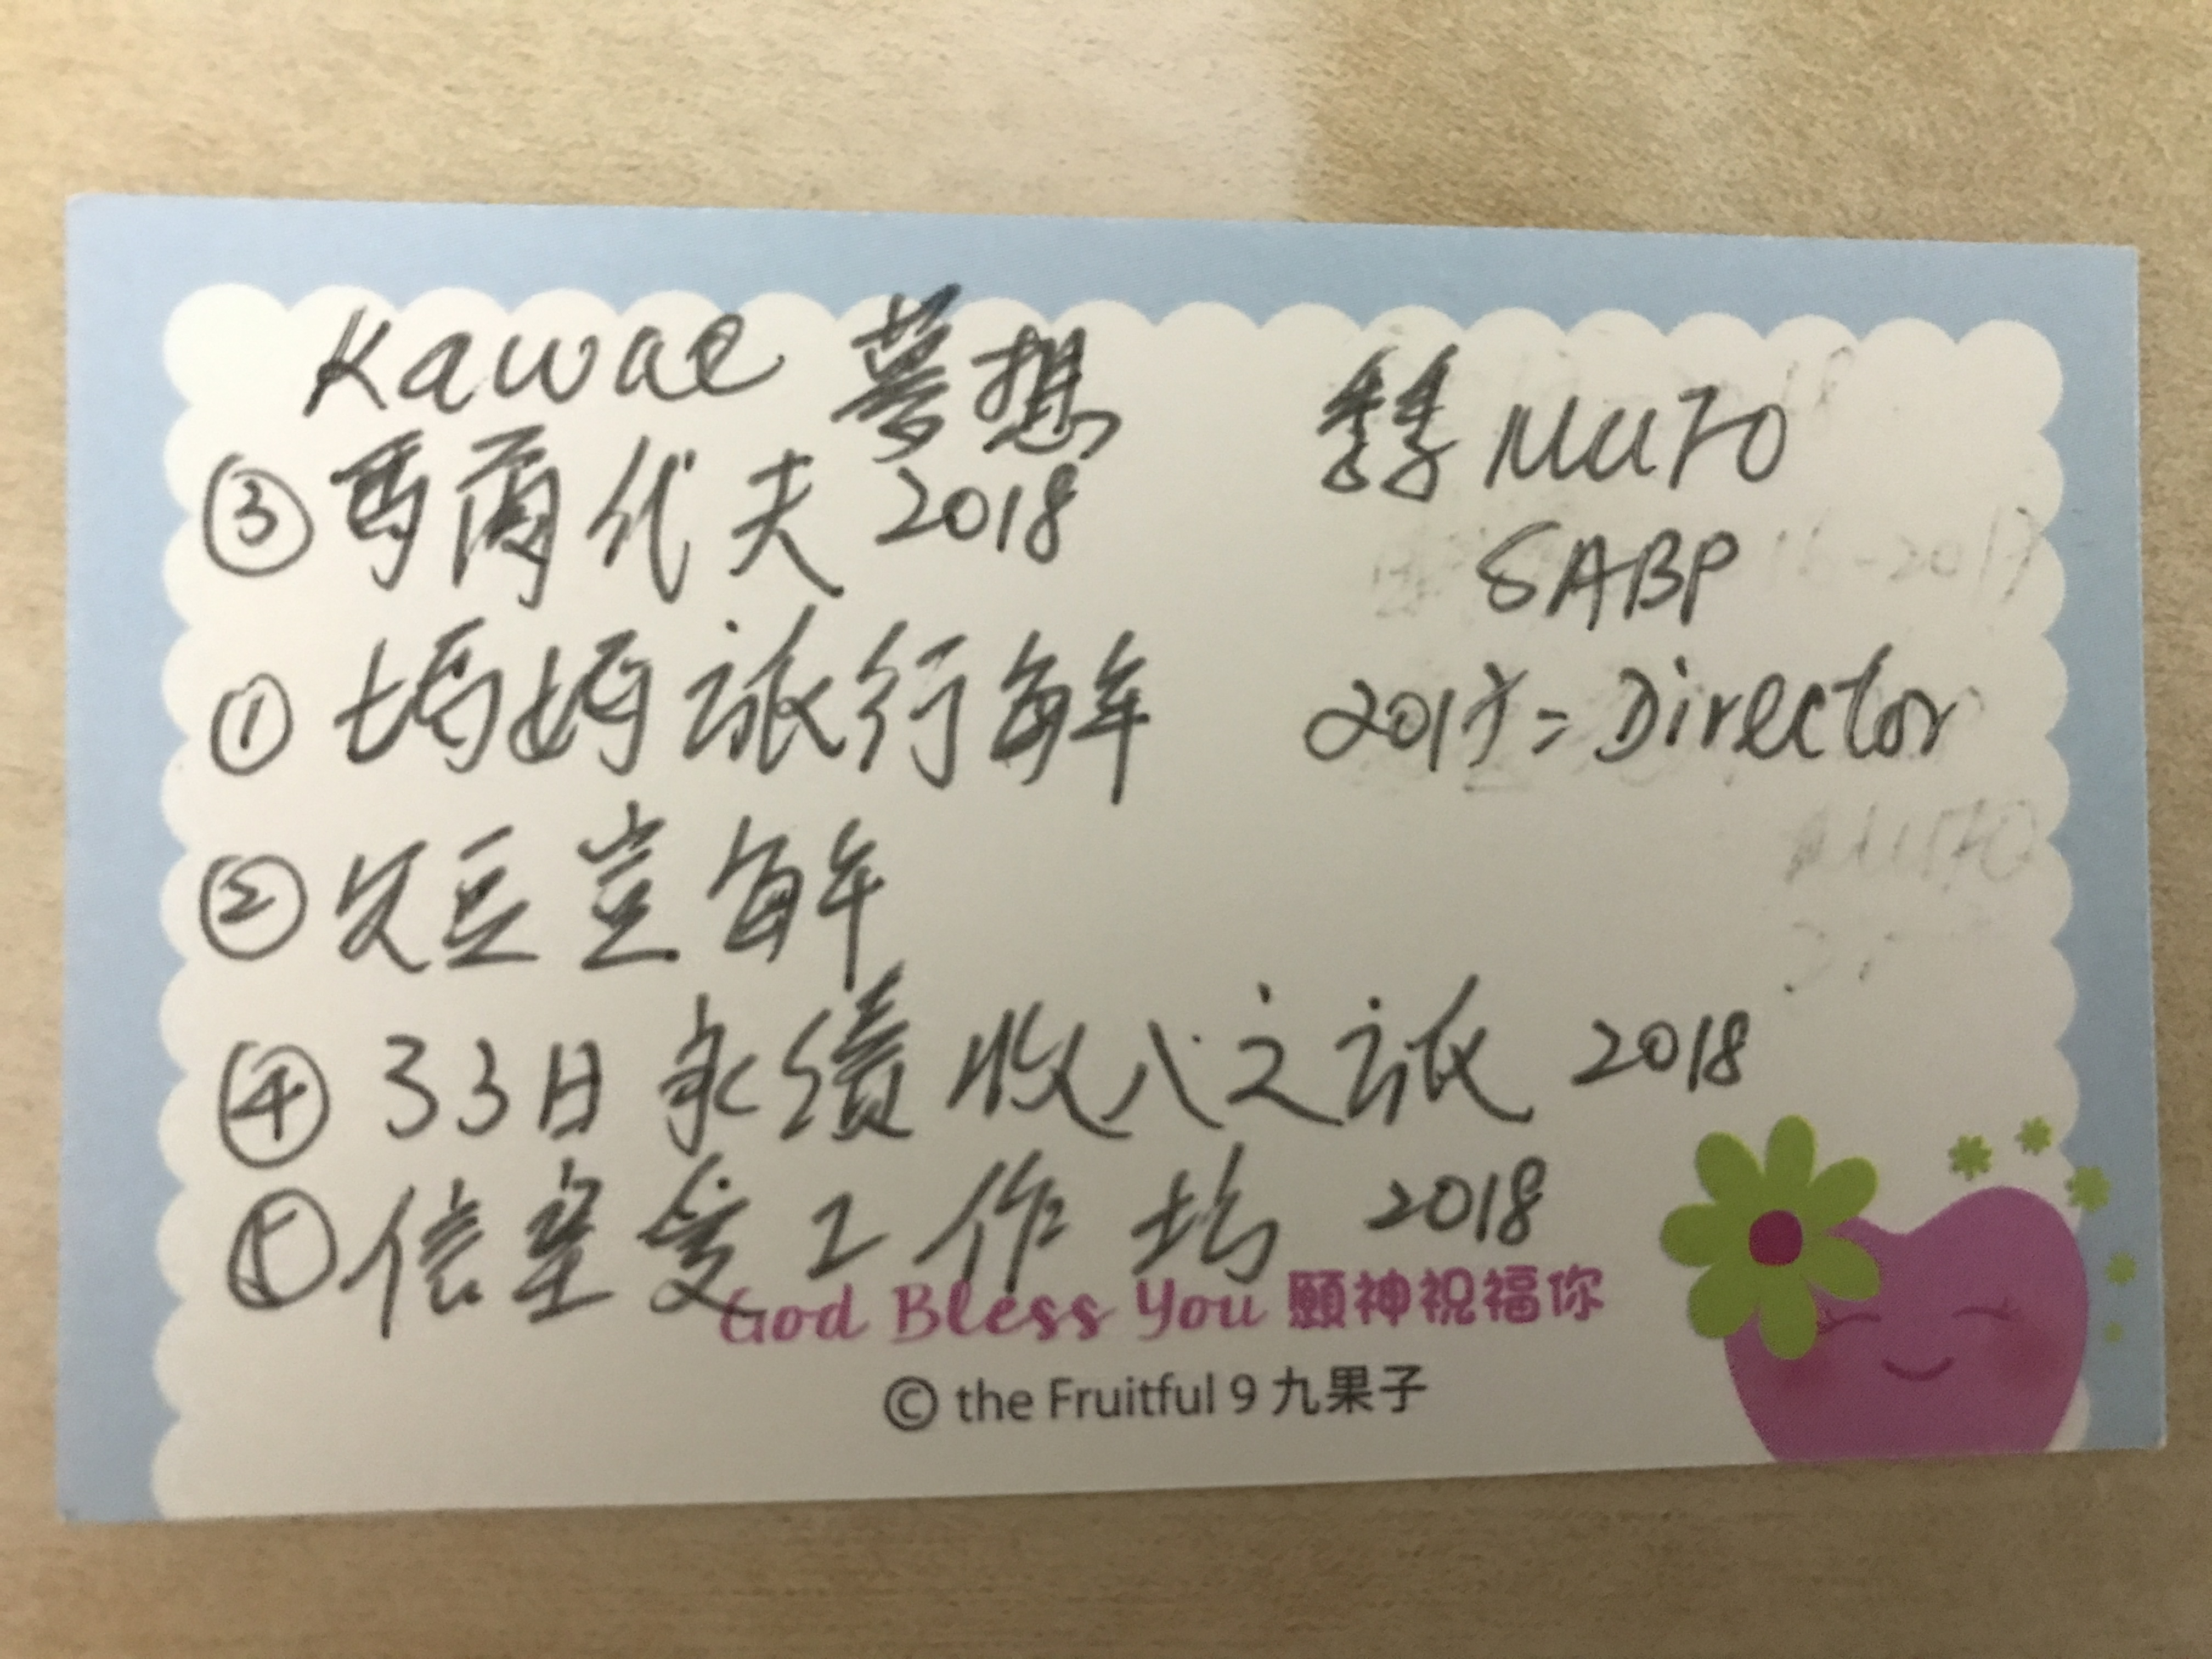 Kawae 夢想
③ 馬爾代夫 2018
① 媽媽旅行每年
② 父豆豈每年
④ 33日永續收入之旅 2018
⑤ 信望愛工作坊 2018
季季 MUFO
SABP
2017 = Director
God Bless You 願神祝福你
© the Fruitful 9 九果子